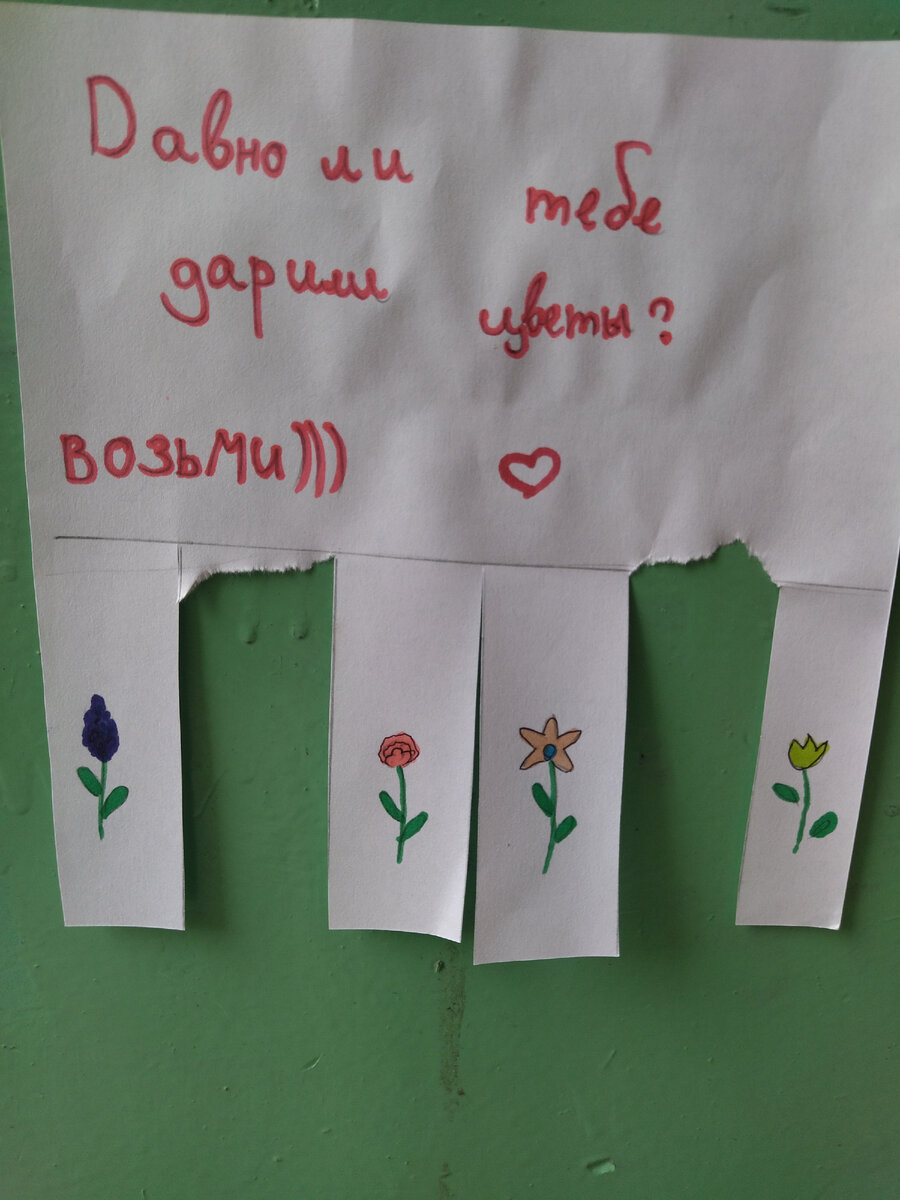 Давно ли тебе
дарили цветы?
возьми)))